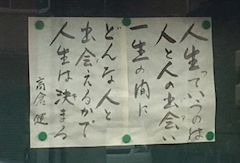 人生っていうのは
人と人の出会い
一生の間に
どんな人と
出会えるかで
人生は決まる
高倉健